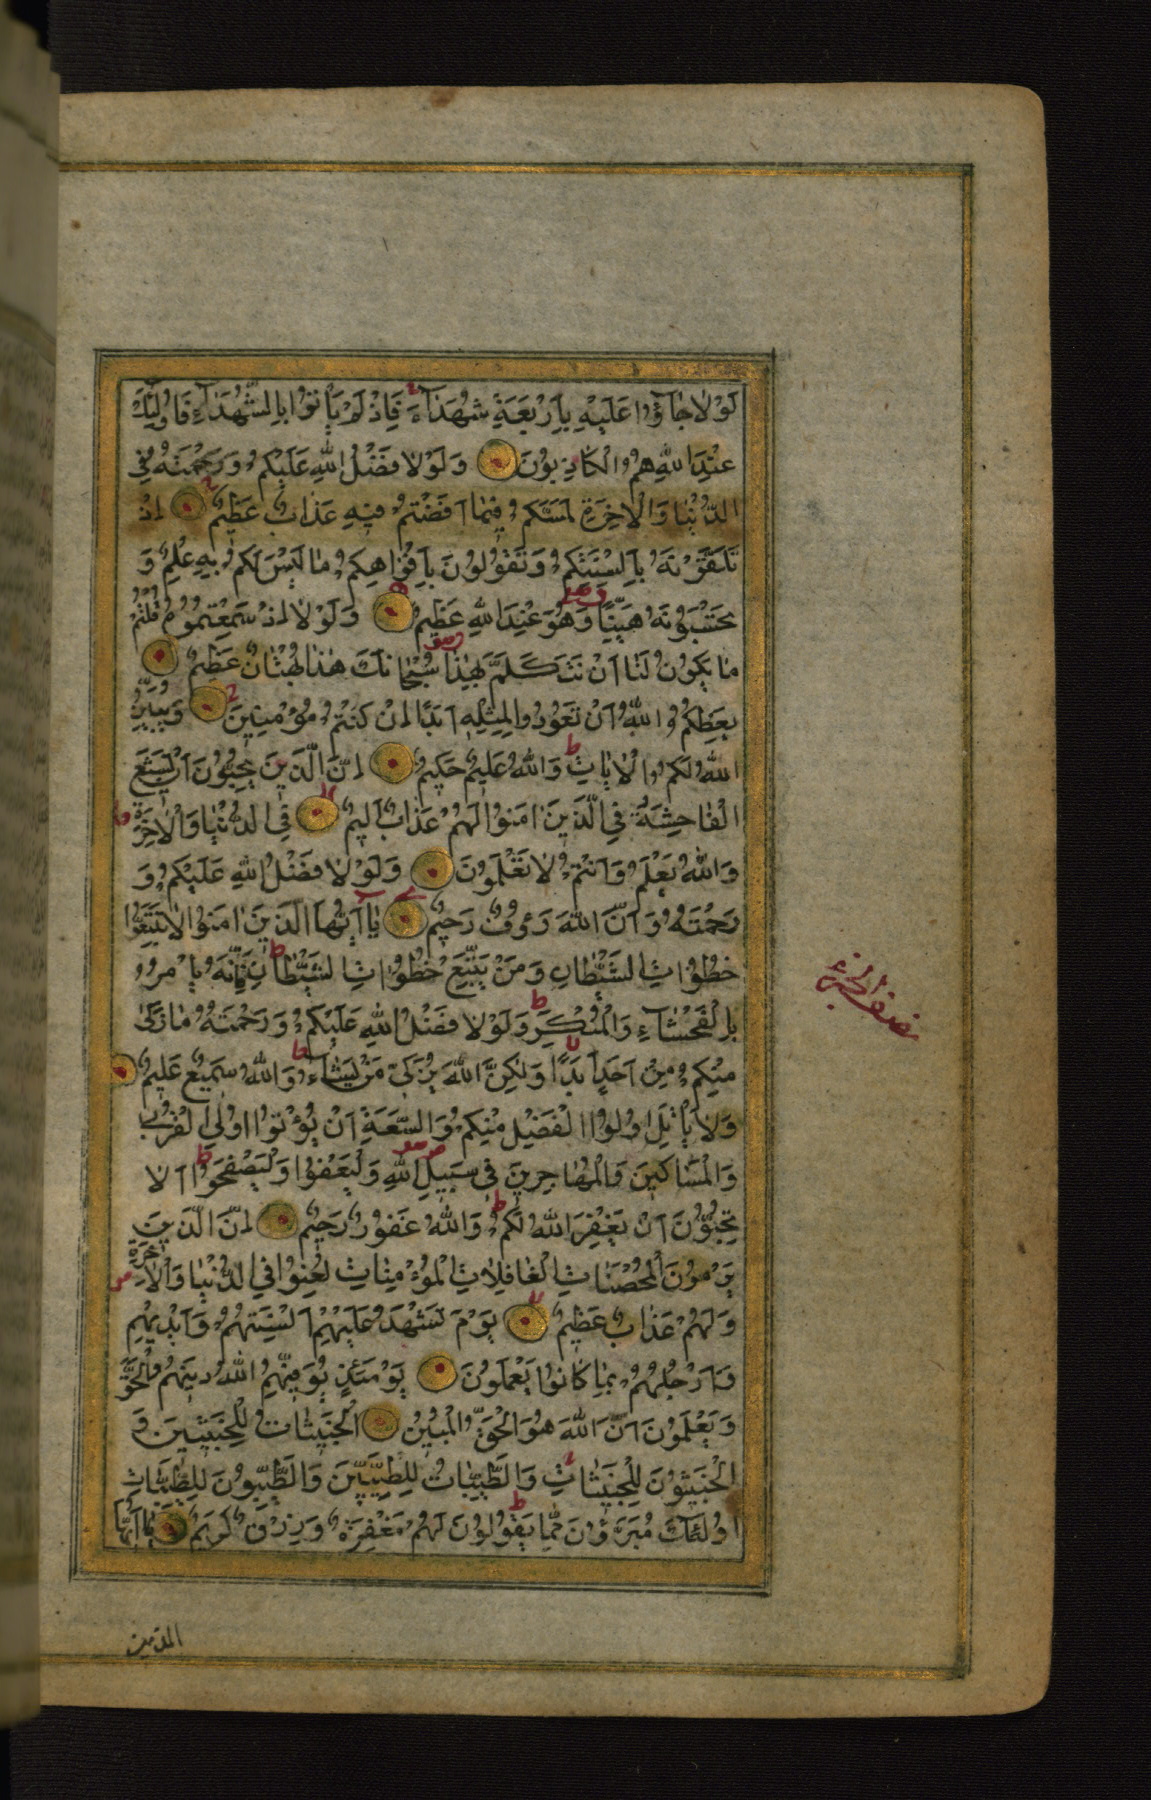 لَوْلَا جَاؤُا عَلَيْهِ بِاَرْبَعَةِ شُهَدَاءَ فَاِذْ لَمْ يَأْتُوا بِالشُّهَدَاءِ فَاُولٰئِكَ
عِنْدَ اللهِ هُمُ الْكَاذِبُونَ وَلَوْلَا فَضْلُ اللهِ عَلَيْكُمْ وَرَحْمَتُهُ فِي
الدُّنْيَا وَالْاٰخِرَةِ لَمَسَّكُمْ فِيمَا اَفَضْتُمْ فِيهِ عَذَابٌ عَظِيمٌ اِذْ
تَلَقَّوْنَهُ بِاَلْسِنَتِكُمْ وَتَقُولُونَ بِاَفْوَاهِكُمْ مَا لَيْسَ لَكُمْ بِهِ عِلْمٌ وَ
تَحْسَبُونَهُ هَيِّنًا وَهُوَ عِنْدَ اللهِ عَظِيمٌ وَلَوْلَا اِذْ سَمِعْتُمُوهُ قُلْتُمْ
مَا يَكُونُ لَنَا اَنْ نَتَكَلَّمَ بِهٰذَا سُبْحَانَكَ هٰذَا بُهْتَانٌ عَظِيمٌ
يَعِظُكُمُ اللهُ اَنْ تَعُودُوا لِمِثْلِهِ اَبَدًا اِنْ كُنْتُمْ مُؤْمِنِينَ وَيُبَيِّنُ
اللهُ لَكُمُ الْاٰيَاتِ وَاللهُ عَلِيمٌ حَكِيمٌ اِنَّ الَّذِينَ يُحِبُّونَ اَنْ تَشِيعَ
الْفَاحِشَةُ فِي الَّذِينَ اٰمَنُوا لَهُمْ عَذَابٌ اَلِيمٌ فِي الدُّنْيَا وَالْاٰخِرَةِ
وَاللهُ يَعْلَمُ وَاَنْتُمْ لَا تَعْلَمُونَ وَلَوْلَا فَضْلُ اللهِ عَلَيْكُمْ وَ
رَحْمَتُهُ وَاَنَّ اللهَ رَؤُفٌ رَحِيمٌ يَا اَيُّهَا الَّذِينَ اٰمَنُوا لَا تَتَّبِعُوا
خُطُوَاتِ الشَّيْطَانِ وَمَنْ يَتَّبِعْ خُطُوَاتِ الشَّيْطَانِ فَاِنَّهُ يَأْمُرُ
بِالْفَحْشَاءِ وَالْمُنْكَرِ وَلَوْلَا فَضْلُ اللهِ عَلَيْكُمْ وَرَحْمَتُهُ مَا زَكٰى
مِنْكُمْ مِنْ اَحَدٍ اَبَدًا وَلٰكِنَّ اللهَ يُزَكِّي مَنْ يَشَاءُ وَاللهُ سَمِيعٌ عَلِيمٌ
وَلَا يَأْتَلِ اُولُوا الْفَضْلِ مِنْكُمْ وَالسَّعَةِ اَنْ يُؤْتُوا اُولِي الْقُرْبٰى
وَالْمَسَاكِينَ وَالْمُهَاجِرِينَ فِي سَبِيلِ اللهِ وَلْيَعْفُوا وَلْيَصْفَحُوا اَلَا
تُحِبُّونَ اَنْ يَغْفِرَ اللهُ لَكُمْ وَاللهُ غَفُورٌ رَحِيمٌ اِنَّ الَّذِينَ
يَرْمُونَ الْمُحْصَنَاتِ الْغَافِلَاتِ الْمُؤْمِنَاتِ لُعِنُوا فِي الدُّنْيَا وَالْاٰخِرَةِ
وَلَهُمْ عَذَابٌ عَظِيمٌ يَوْمَ تَشْهَدُ عَلَيْهِمْ اَلْسِنَتُهُمْ وَاَيْدِيهِمْ
وَاَرْجُلُهُمْ بِمَا كَانُوا يَعْمَلُونَ يَوْمَئِذٍ يُوَفِّيهِمُ اللهُ دِينَهُمُ الْحَقَّ
وَيَعْلَمُونَ اَنَّ اللهَ هُوَ الْحَقُّ الْمُبِينُ اَلْخَبِيثَاتُ لِلْخَبِيثِينَ وَ
الْخَبِيثُونَ لِلْخَبِيثَاتِ وَالطَّيِّبَاتُ لِلطَّيِّبِينَ وَالطَّيِّبُونَ لِلطَّيِّبَاتِ
اُولٰئِكَ مُبَرَّؤُنَ مِمَّا يَقُولُونَ لَهُمْ مَغْفِرَةٌ وَرِزْقٌ كَرِيمٌ يَا اَيُّهَا
نصف الجزء
الذين